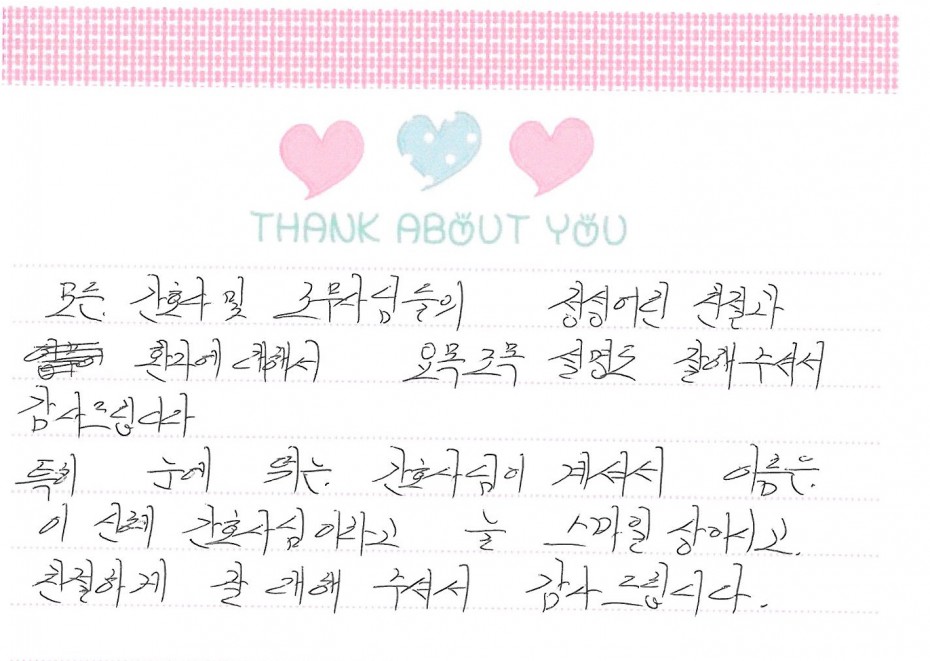 THANK ABOUT YOU
모든 간호사 및 조무사님들의 정성어린 친절과
환자에 대해서 요목조목 설명도 잘해주셔서
감사드립니다
특히 눈에 띄는 간호사님이 계셔서 이름은
이 신례 간호사님 이라고 늘 스마일 상이시고,
친절하게 잘 대해 주셔서 감사드립니다.